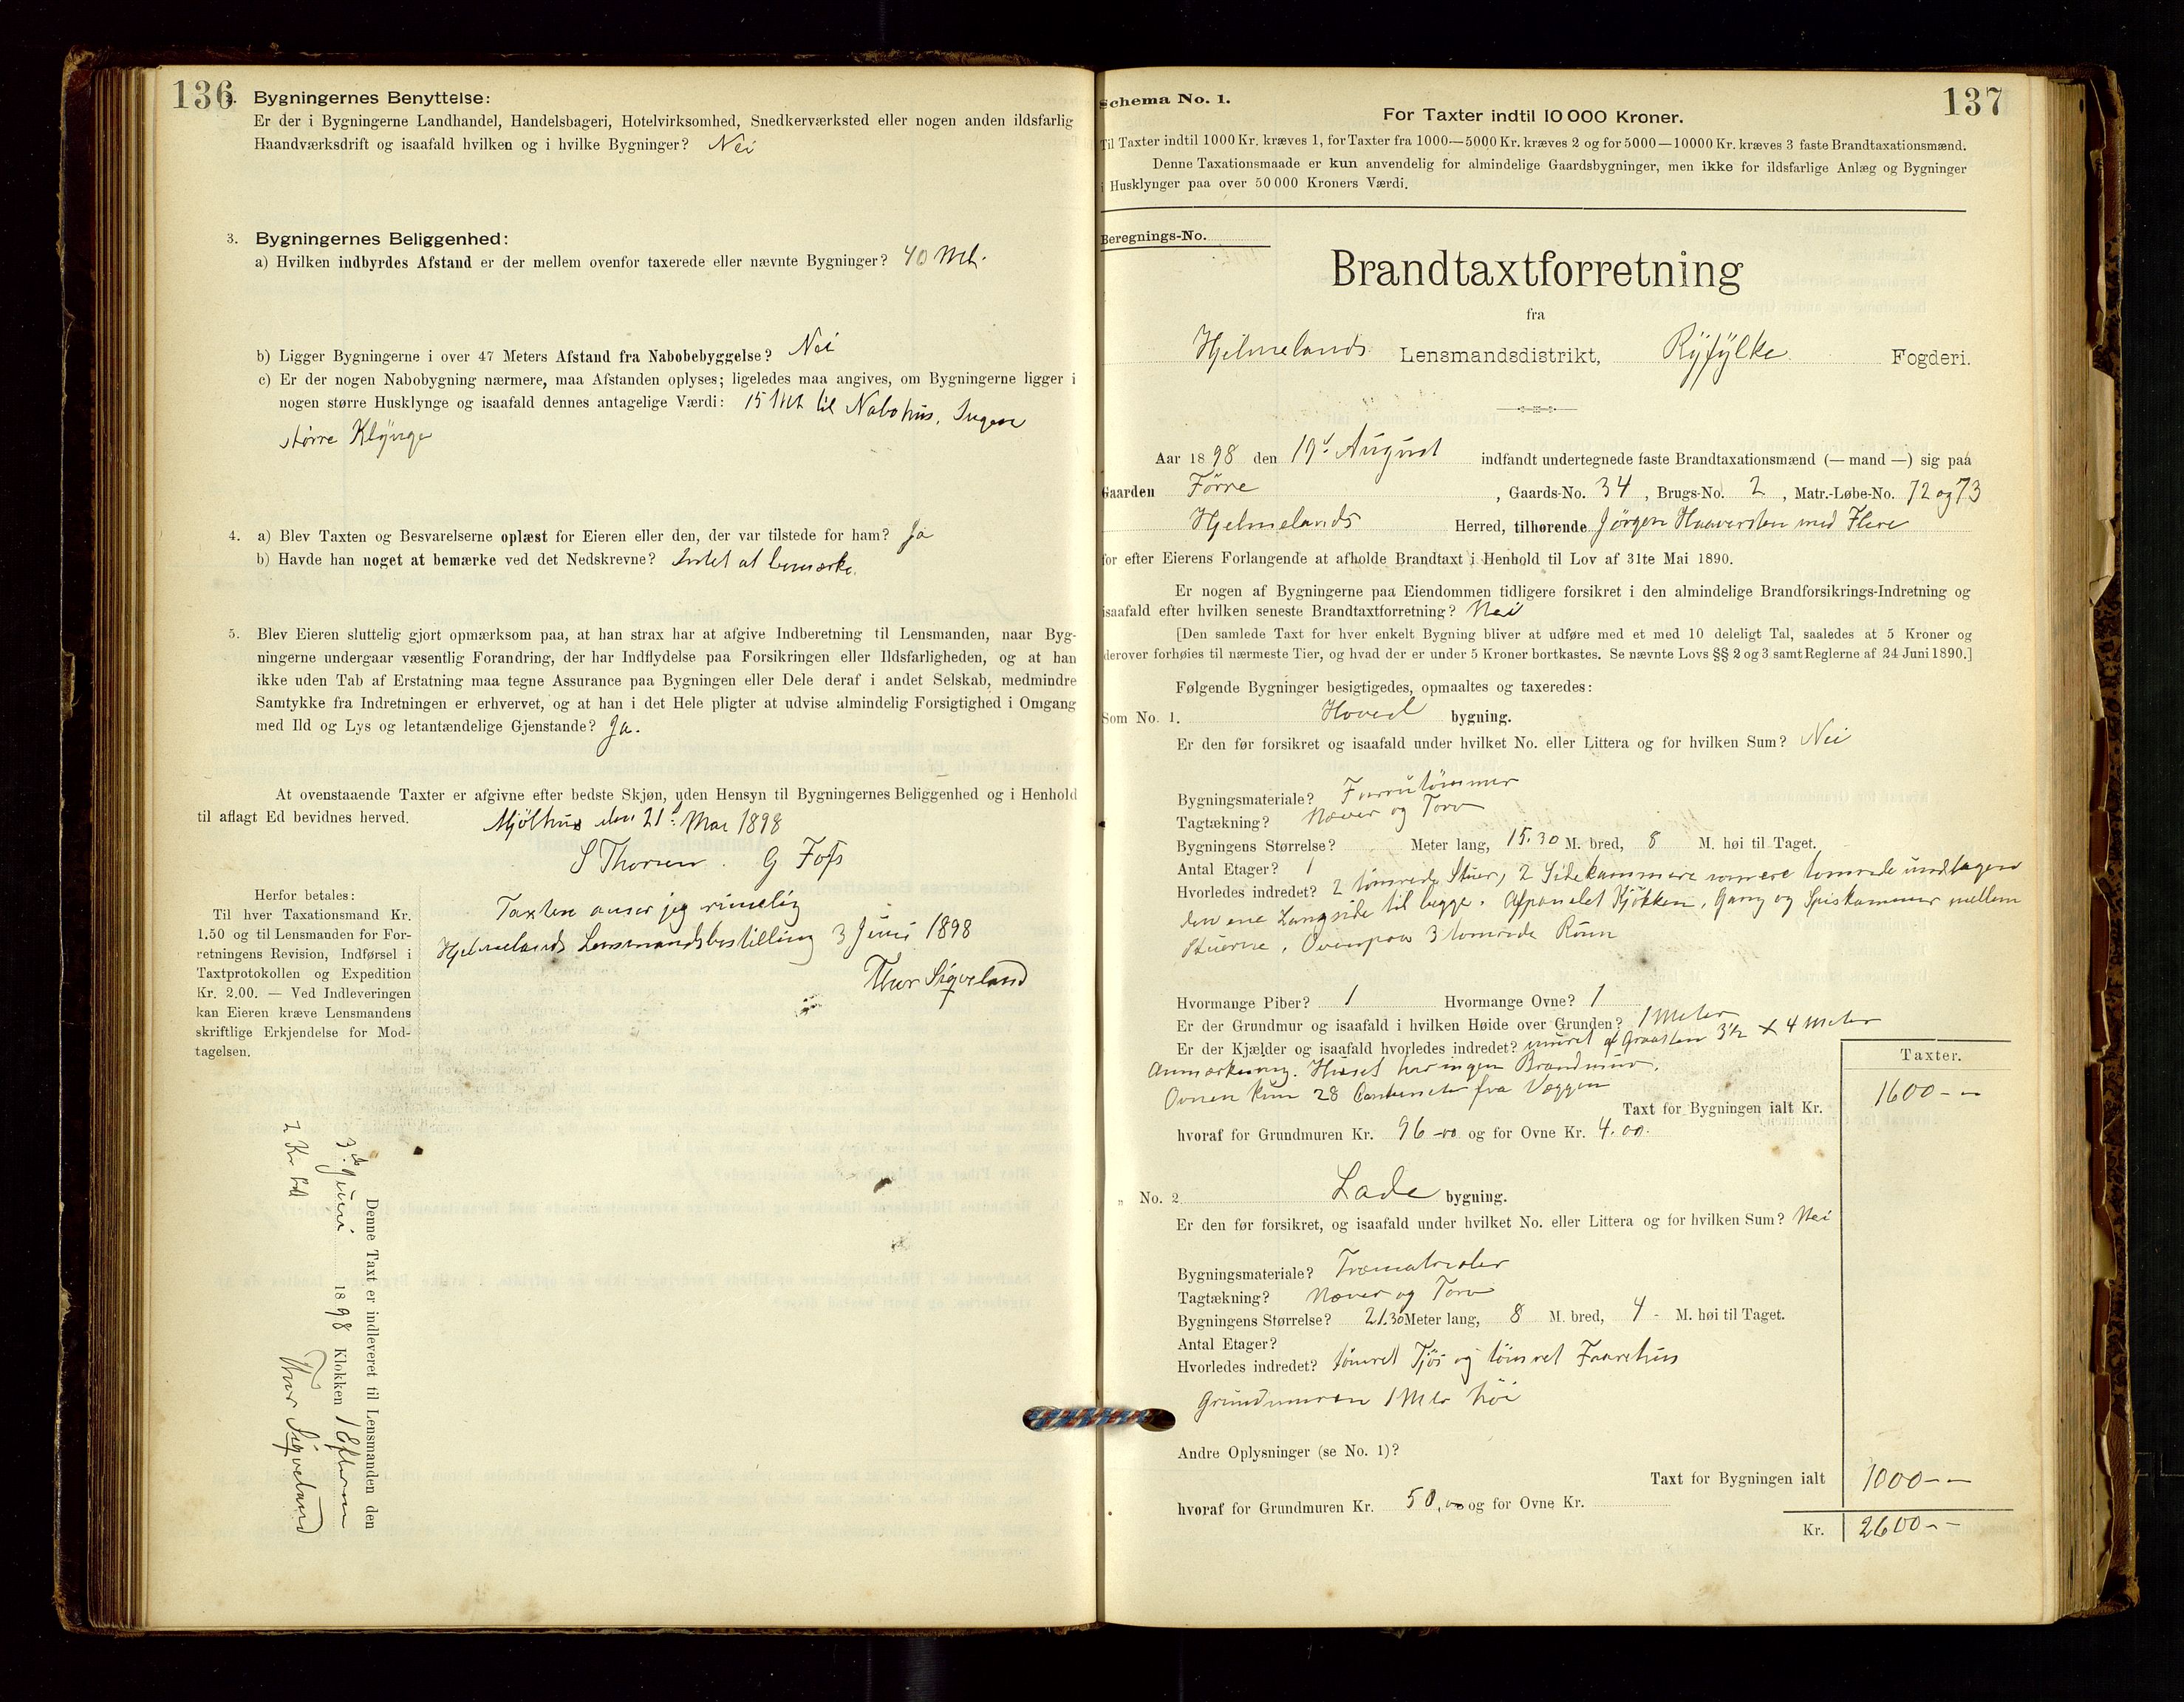 136
2. Bygningernes Benyttelse:
Er der i Bygningerne Landhandel, Handelsbageri, Hotelvirksomhed, Snedkerværksted eller nogen anden ildsfarlig
Haandværksdrift og isaafald hvilken og i hvilke Bygninger? Nei
3. Bygningernes Beliggenhed:
a) Hvilken indbyrdes Afstand er der mellem ovenfor taxerede eller nævnte Bygninger? 40 Mtr.
b) Ligger Bygningerne i over 47 Meters Afstand fra Nabobebyggelse? Nei
c) Er der nogen Nabobygning nærmere, maa Afstanden oplyses; ligeledes maa angives, om Bygningerne ligger i
nogen større Husklynge og isaafald dennes antagelige Værdi: 15 Mt til Nabohus. Ingen
større Klynge
4. a) Blev Taxten og Besvarelserne oplæst for Eieren eller den, der var tilstede for ham? Ja
b) Havde han noget at bemærke ved det Nedskrevne? Intet at bemærke.
5. Blev Eieren sluttelig gjort opmærksom paa, at han strax har at afgive Indberetning til Lensmanden, naar Byg-
ningerne undergaar væsentlig Forandring, der har Indflydelse paa Forsikringen eller Ildsfarligheden, og at han
ikke uden Tab af Erstatning maa tegne Assurance paa Bygningen eller Dele deraf i andet Selskab, medmindre
Samtykke fra Indretningen er erhvervet, og at han i det Hele pligter at udvise almindelig Forsigtighed i Omgang
med Ild og Lys og letantændelige Gjenstande? Ja.
At ovenstaaende Taxter er afgivne efter bedste Skjøn, uden Hensyn til Bygningernes Beliggenhed og i Henhold
til aflagt Ed bevidnes herved.
Mjølhus den 21d Mai 1898
S Thorsen. G Fofs
Herfor betales:
Til hver Taxationsmand Kr.
1.50 og til Lensmanden for For-
retningens Revision, Indførsel i
Taxtprotokollen og Expedition
Kr. 2.00. — Ved Indleveringen
kan Eieren kræve Lensmandens
skriftlige Erkjendelse for Mod-
tagelsen.
Taxten anser jeg rimelig
Hjelmelands Lensmandsbestilling 3 Juni 1898
Thor Sigveland
Denne Taxt er indleveret til Lensmanden den
3d Juni 1898 Klokken 1 Efterm
Thor Sigveland
2 Kr
137
Schema No. 1.
For Taxter indtil 10 000 Kroner.
Til Taxter indtil 1000 Kr. kræves 1, for Taxter fra 1000—5000 Kr. kræves 2 og for 5000—10000 Kr. kræves 3 faste Brandtaxationsmænd.
Denne Taxationsmaade er kun anvendelig for almindelige Gaardsbygninger, men ikke for ildsfarlige Anlæg og Bygninger
i Husklynger paa over 50 000 Kroners Værdi.
Beregnings-No.
Brandtaxtforretning
fra
Hjelmelands Lensmandsdistrikt, Ryfylke Fogderi.
Aar 1898 den 19d August indfandt undertegnede faste Brandtaxationsmænd (— mand —) sig paa
Gaarden Førre, Gaards-No. 34, Brugs-No. 2, Matr.-Løbe-No. 72 og 73
Hjelmelands Herred, tilhørende Jørgen Haaversten med Flere
for efter Eierens Forlangende at afholde Brandtaxt i Henhold til Lov af 31te Mai 1890.
Er nogen af Bygningerne paa Eiendommen tidligere forsikret i den almindelige Brandforsikrings-Indretning og
isaafald efter hvilken seneste Brandtaxtforretning? Nei
[Den samlede Taxt for hver enkelt Bygning bliver at udføre med et med 10 deleligt Tal, saaledes at 5 Kroner og
derover forhøies til nærmeste Tier, og hvad der er under 5 Kroner bortkastes. Se nævnte Lovs §§ 2 og 3 samt Reglerne af 24 Juni 1890.]
Følgende Bygninger besigtigedes, opmaaltes og taxeredes:
Som No. 1. Hoved bygning.
Er den før forsikret og isaafald under hvilket No. eller Littera og for hvilken Sum? Nei
Bygningsmateriale? Furrutømmer
Tagtækning? Næver og Torv
Bygningens Størrelse? Meter lang, 15.30 M. bred, 8 M. høi til Taget.
Antal Etager? 1
Hvorledes indredet? 2 tømrede Stuer, 2 Sidekammere som ere tomrede undtagen
den ene Langside til begge. Afpanelet Kjøkken, Gang og Spiskammer mellem
Stuerne. Ovenpaa 3 tomrede Rum
Hvormange Piber? 1 Hvormange Ovne? 1
Er der Grundmur og isaafald i hvilken Høide over Grunden? 1 Meter
Er der Kjælder og isaafald hvorledes indredet? muret af Graasten 3½ X 4 Meter
Anmærkning. Huset har ingen Brandmur.
Ovnen kun 28 Centimeter fra Væggen
Taxter.
Taxt for Bygningen ialt Kr. 1600 - -
hvoraf for Grundmuren Kr. 96-00 og for Ovne Kr. 4.00.
„ No. 2 Lade bygning.
Er den før forsikret, og isaafald under hvilket No. eller Littera og for hvilken Sum? Nei
Bygningsmateriale? Træmaterialer
Tagtækning? Næver og Torv
Bygningens Størrelse? 21.30 Meter lang, 8 M. bred, 4 - M. høi til Taget.
Antal Etager?
Hvorledes indredet? tømret Fjøs og tømret Faarehus
Grundmuren 1 Mtr høi
Andre Oplysninger (se No. 1)?
Taxt for Bygningen ialt 1000 - -
hvoraf for Grundmuren Kr. 50,00 og for Ovne Kr.
Kr. 2600 - -